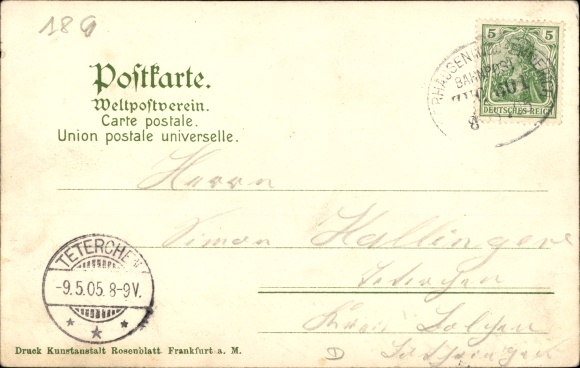 189
Postkarte.
Weltpostverein.
Carte postale.
Union postale universelle.
5 5
DEUTSCHES REICH
BAHNPOST
ZUG
8
Herrn
Simon Hallinger
Teterchen
Kreis Bolchen
Lothringen
D
TETERCHEN
-9.5.05.8-9V.
Druck Kunstanstalt Rosenblatt Frankfurt a. M.